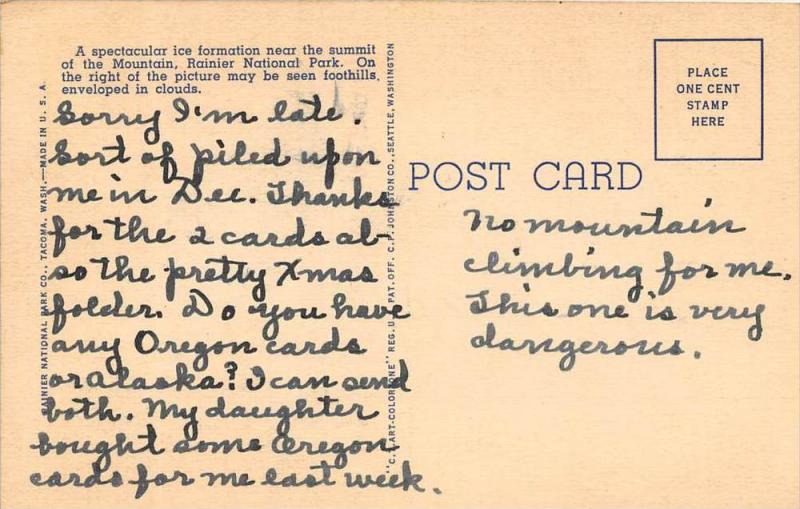 A spectacular ice formation near the summit
of the Mountain, Rainier National Park. On
the right of the picture may be seen foothills,
enveloped in clouds.
Sorry I'm late.
Sort of piled upon
me in Dec. Thanks
for the 2 cards al-
so the pretty Xmas
folder. Do you have
any Oregon cards
or Alaska? I can send
both. My daughter
bought some Oregon
cards for me last week.
RAINIER NATIONAL PARK CO., TACOMA, WASH.—MADE IN U. S. A.
"C.T. ART-COLORTONE" REG. U.S. PAT. OFF. C. P. JOHNSTON CO., SEATTLE, WASHINGTON
POST CARD
PLACE
ONE CENT
STAMP
HERE
No mountain
climbing for me.
This one is very
dangerous.